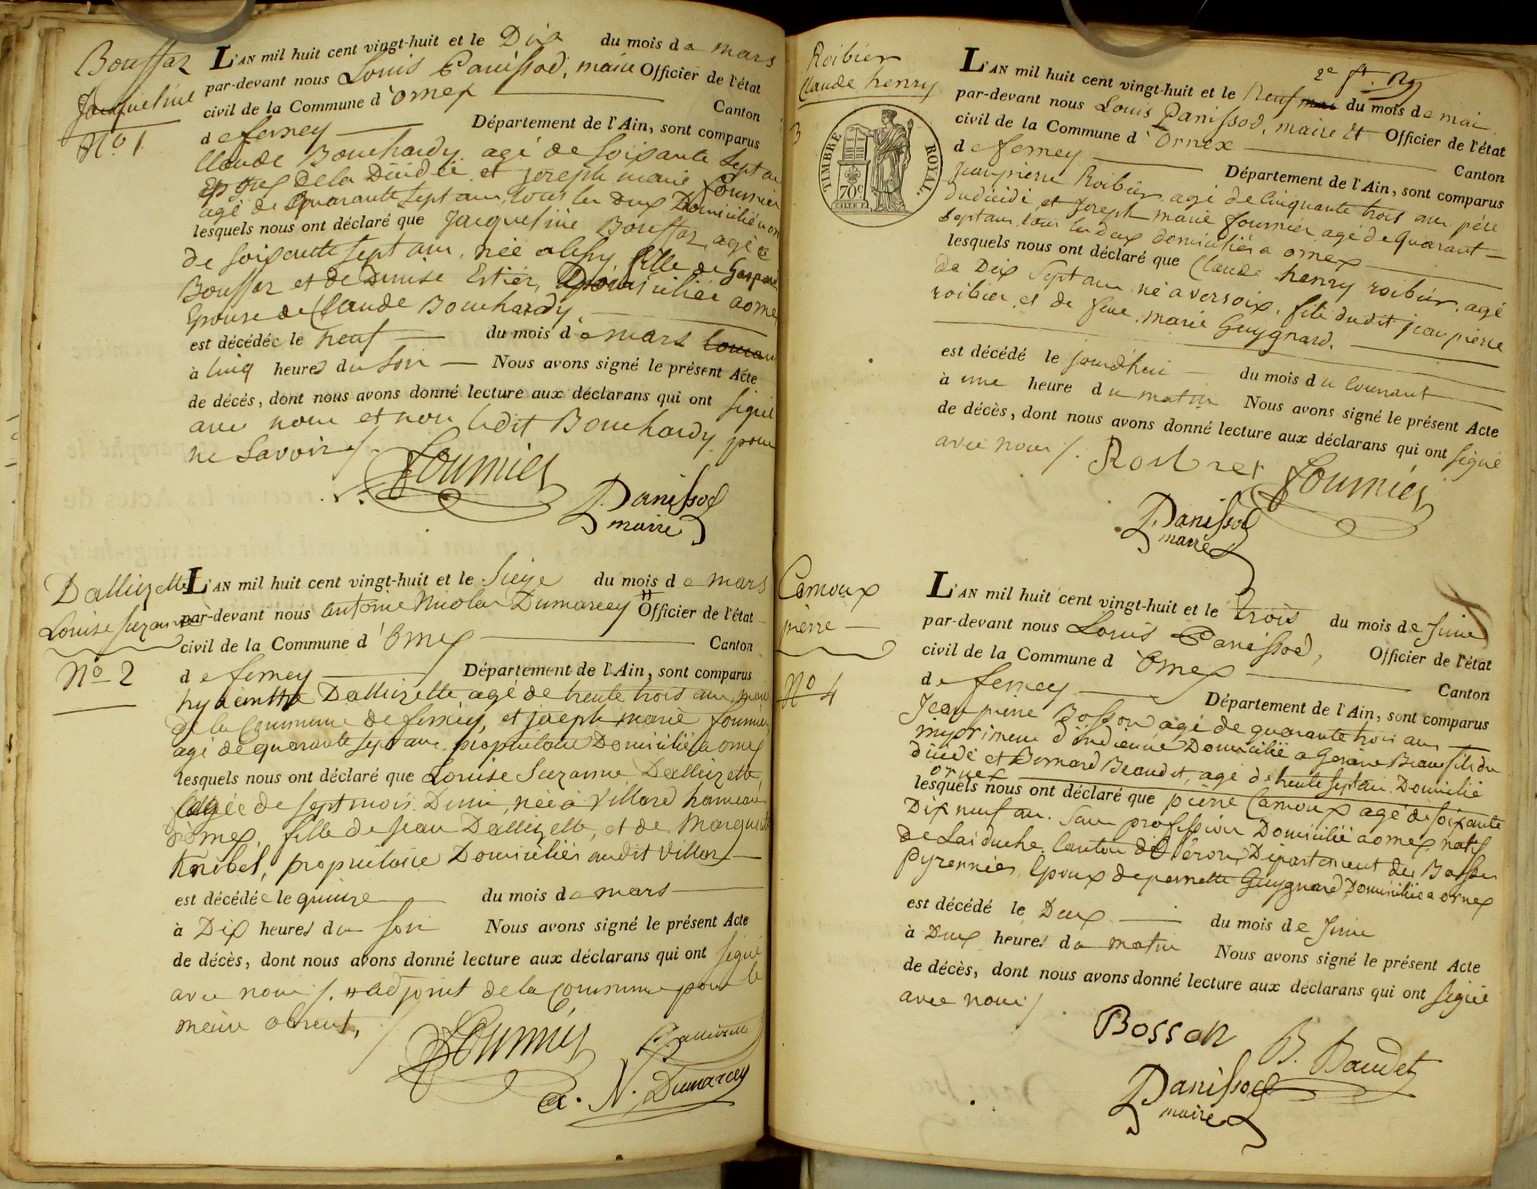 Bouffaz
Jacqueline
No 1
L'AN mil huit cent vingt-huit et le Dix du mois de mars
par-devant nous Louis Panissod, maire Officier de l'état
civil de la Commune d'Ornex Canton
de ferney Département de l'Ain, sont comparus
Claude Bouchardy agé de soixante sept an
Epoux de la Décédée et joseph marie fournier
agé de quarante sept ans, tous les deux Domiciliés a
lesquels nous ont déclaré que Jacqueline Bouffaz agée
de soixante sept ans, née a fille de Gaspard
Bouffaz et de Denise Estier, Domiciliée a ornex
Epouse de Claude Bouchardy,
est décédée le neuf du mois de mars
à cinq heures du soir Nous avons signé le présent Acte
de décès, dont nous avons donné lecture aux déclarans qui ont signé
avec nous et non ledit Bouchardy pour
ne Savoir /.
Fournier
Panissod
maire
Dallizette
Louise Suzanne
No 2
L'AN mil huit cent vingt-huit et le Seize du mois de mars
par-devant nous antoine Nicolas Dumarcey # Officier de l'état
civil de la Commune d'Ornex Canton
de ferney Département de l'Ain, sont comparus
hyacinthe Dallizette agé de trente trois ans,
de la Commune de ferney, et joseph marie fournier
agé de quarante sept ans, propriétaire Domicilié a ornex
lesquels nous ont déclaré que Louise Suzanne Dallizette,
agée de sept mois Demi, née à Villard hameau
d'ornex, fille de Jean Dallizette, et de Marguerite
Knibel, propriétaire Domiciliés audit Villard
est décédée le quinze du mois de mars
à Dix heures du soir Nous avons signé le présent Acte
de décès, dont nous avons donné lecture aux déclarans qui ont signé
avec nous /. # adjoint de la Commune pour le
maire absent,
Fournier
Dallizette
a. N. Dumarcey
Roibier
Claude henry
3
TIMBRE ROYAL
70c
L'AN mil huit cent vingt-huit et le Neuf du mois de mai
par-devant nous Louis Panissod, maire Et Officier de l'état
civil de la Commune d'Ornex Canton
de ferney Département de l'Ain, sont comparus
Jean pierre Roibier agé de Cinquante trois ans père
du décédé, et joseph marie fournier agé de quarant
sept ans tous les deux domiciliés a ornex
lesquels nous ont déclaré que Claude henry roibier, agé
de Dix sept ans né a versoix, fils dudit jean pierre
roibier et de feue marie Guygnard,
est décédé le jourdhui du mois du courant
à une heure du matin Nous avons signé le présent Acte
de décès, dont nous avons donné lecture aux déclarans qui ont signé
avec nous /.
Fournier
Panissod
maire
Camoux
pierre
No 4
L'AN mil huit cent vingt-huit et le trois du mois de Juin
par-devant nous Louis Panissod, Officier de l'état
civil de la Commune d'Ornex Canton
de ferney Département de l'Ain, sont comparus
Jean pierre Bosson agé de quarante trois ans
imprimeur d'indienne Domicilié a Genève Beau fils du
décédé et Bernard Beaudet, agé de trente sept ans Domicilié
ornex
lesquels nous ont déclaré que pierre Camoux agé de soixante
Dix neuf ans Sans profession Domicilié a ornex natif
Canton Département des Basses
Pyrennées, Epoux de pernette Guygnard Domiciliée a ornex
est décédé le Deux du mois de Juin
à Deux heures du matin Nous avons signé le présent Acte
de décès, dont nous avons donné lecture aux déclarans qui ont signé
avec nous /
Bosson
B. Baudet
Panissod
maire